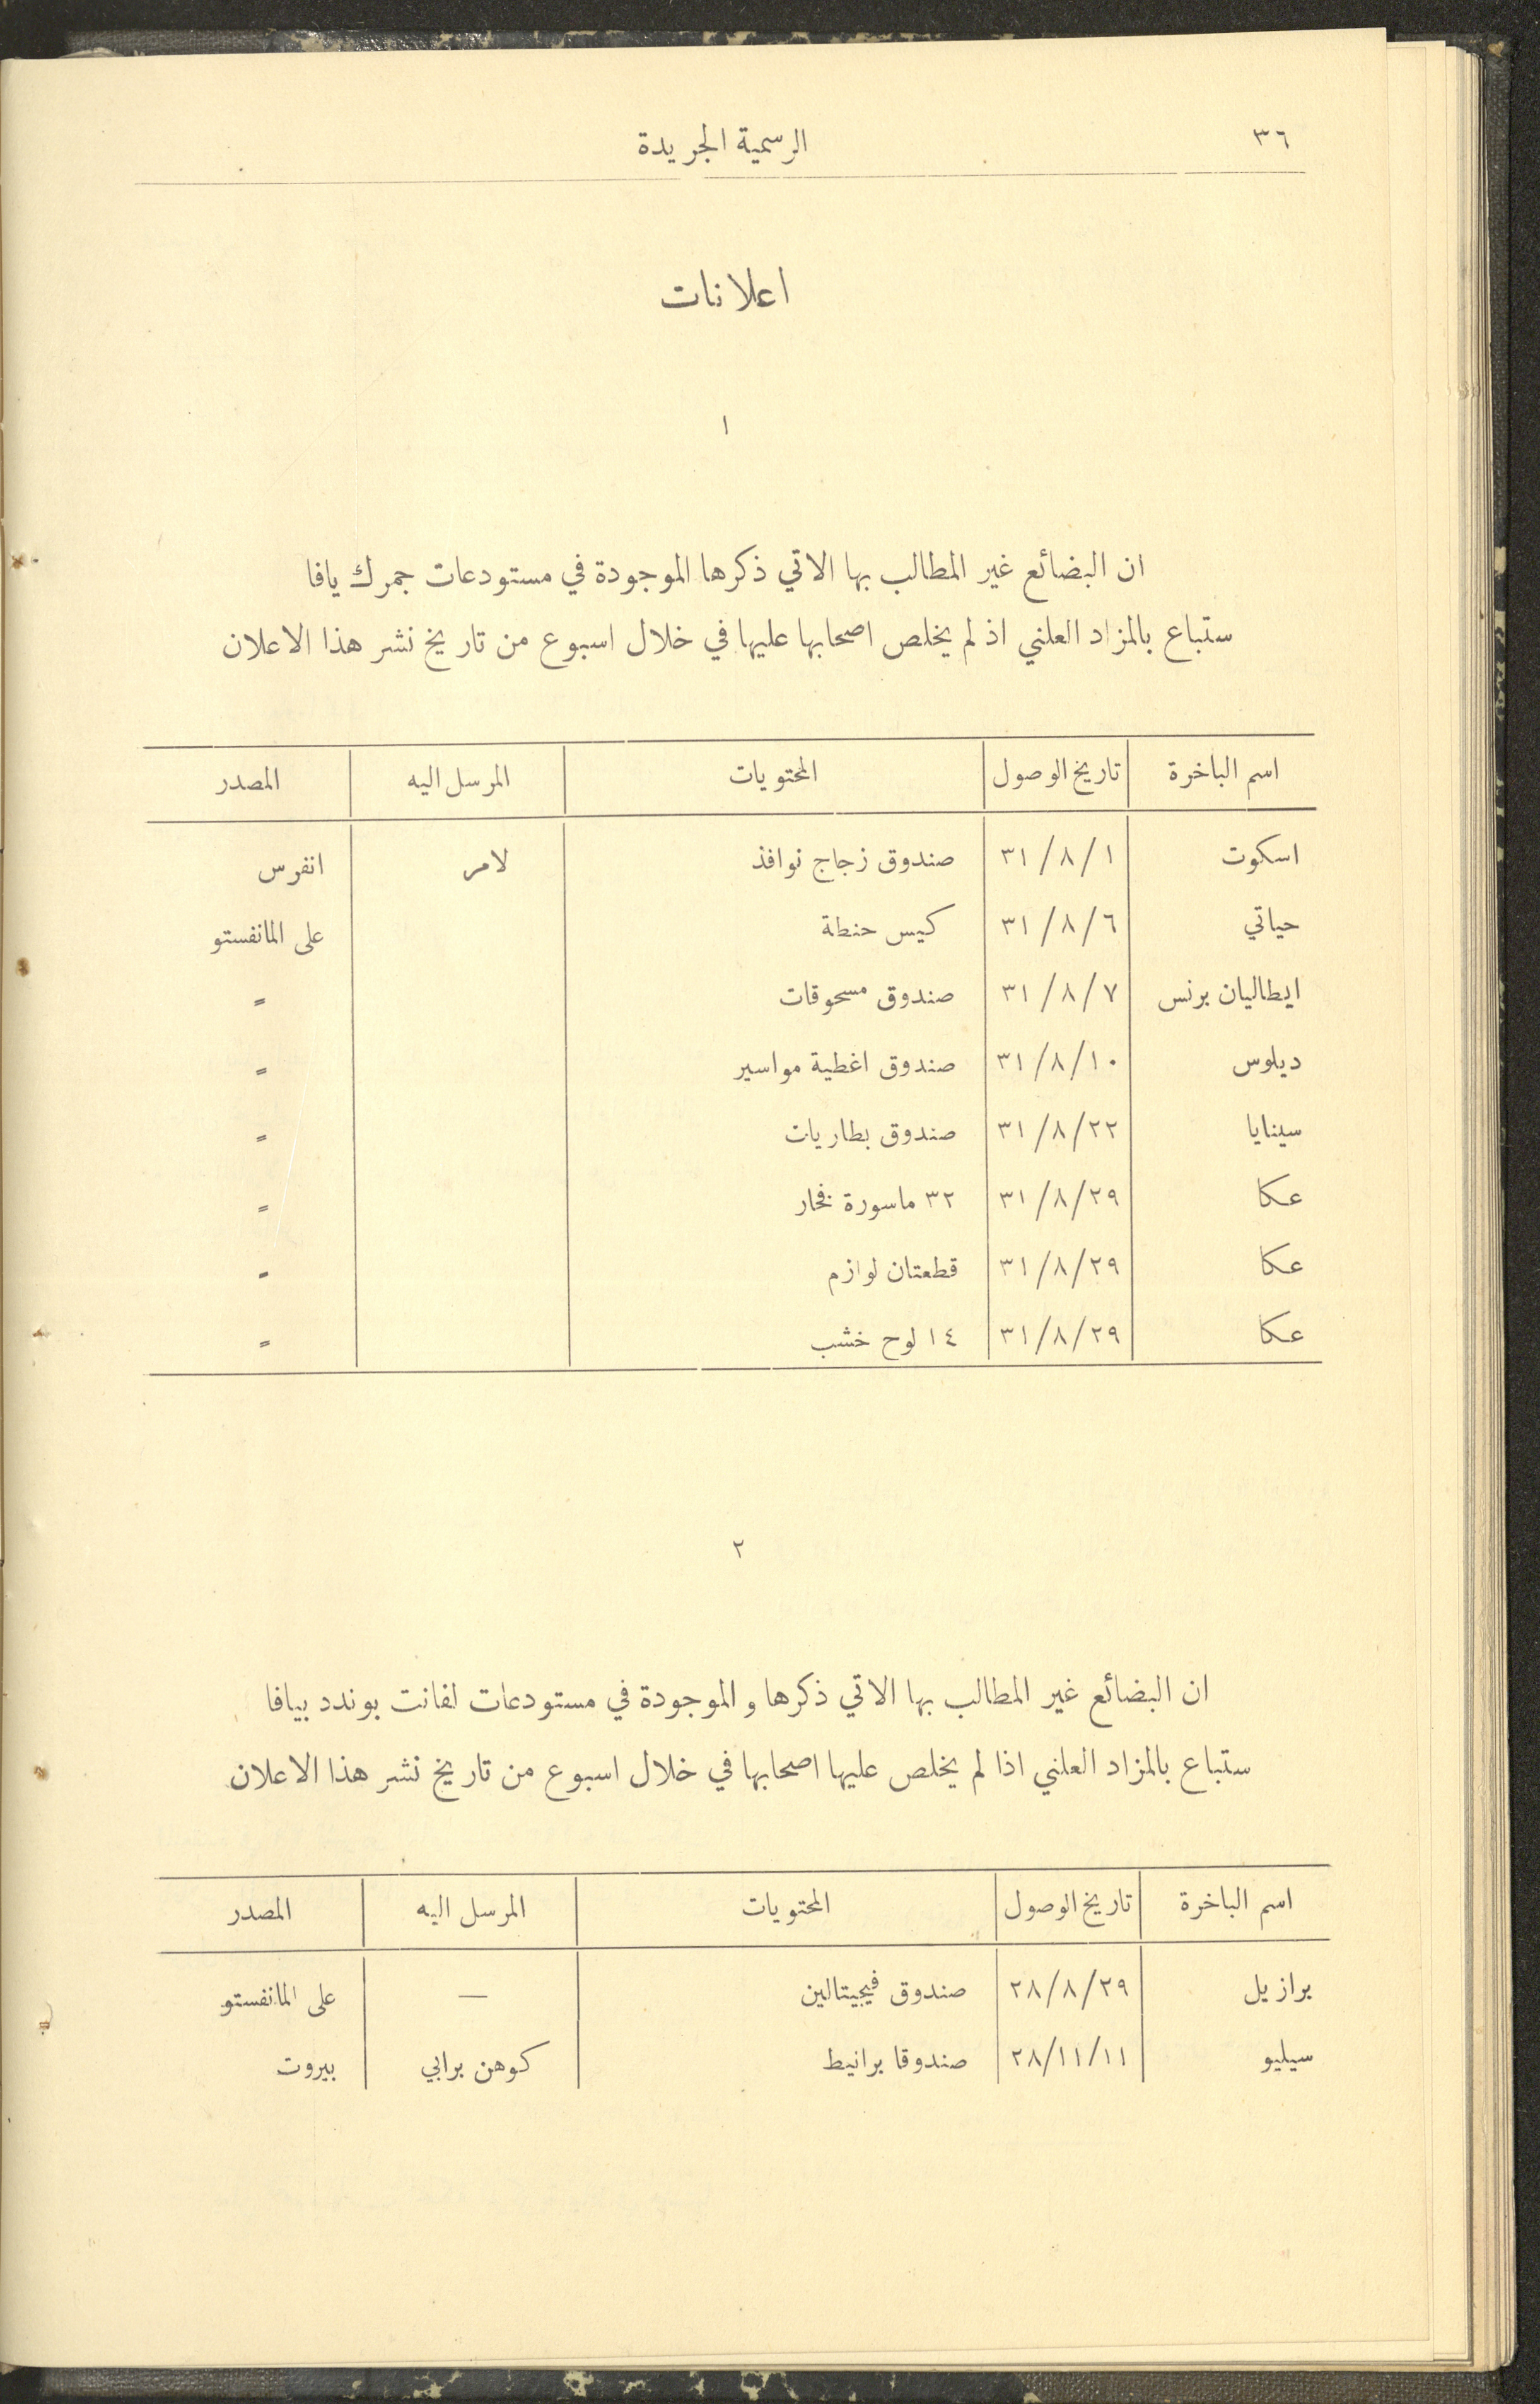 ٣٦
الرسمية الجريدة
اعلانات
١
ان البضائع غير المطالب بها الاتي ذكرها الموجودة في مستودعات جمرك يافا
ستباع بالمزاد العلني اذ لم يخلص اصحابها عليها في خلال اسبوع من تاريخ نشر هذا الاعلان
اسم الباخرة تاريخ الوصول المحتويات المرسل اليه المصدر
اسكوت ٣١/٨/١ صندوق زجاج نوافذ لامر انفرس
حياتي ٣١/٨/٦ كيس حنطة على المانفستو
ايطاليان برنس ٣١/٨/٧ صندوق مسحوقات =
ديلوس ٣١/٨/١٠ صندوق اغطية مواسير =
سينايا ٣١/٨/٢٢ صندوق بطاريات =
عكا ٣١/٨/٢٩ ٣٢ ماسورة فخار =
عكا ٣١/٨/٢٩ قطعتان لوازم =
عكا ٣١/٨/٢٩ ١٤ لوح خشب =
٢
ان البضائع غير المطالب بها الاتي ذكرها و الموجودة في مستودعات لفانت بوندد بيافا
ستباع بالمزاد العلني اذا لم يخلص عليها اصحابها في خلال اسبوع من تاريخ نشر هذا الاعلان
اسم الباخرة تاريخ الوصول المحتويات المرسل اليه المصدر
برازيل ٢٨/٨/٢٩ صندوق فيجيتالين — على المانفستو
سيليو ٢٨/١١/١١ صندوقا برانيط كوهن برابي بيروت